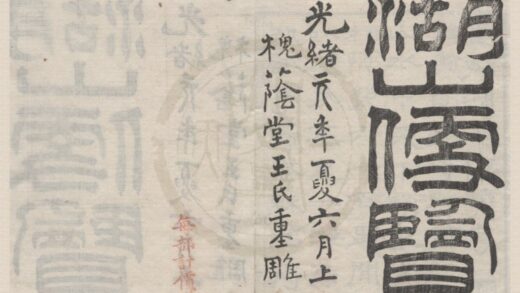 湖山便覽
光緒元年夏六月上
槐蔭堂王氏重雕
每部計